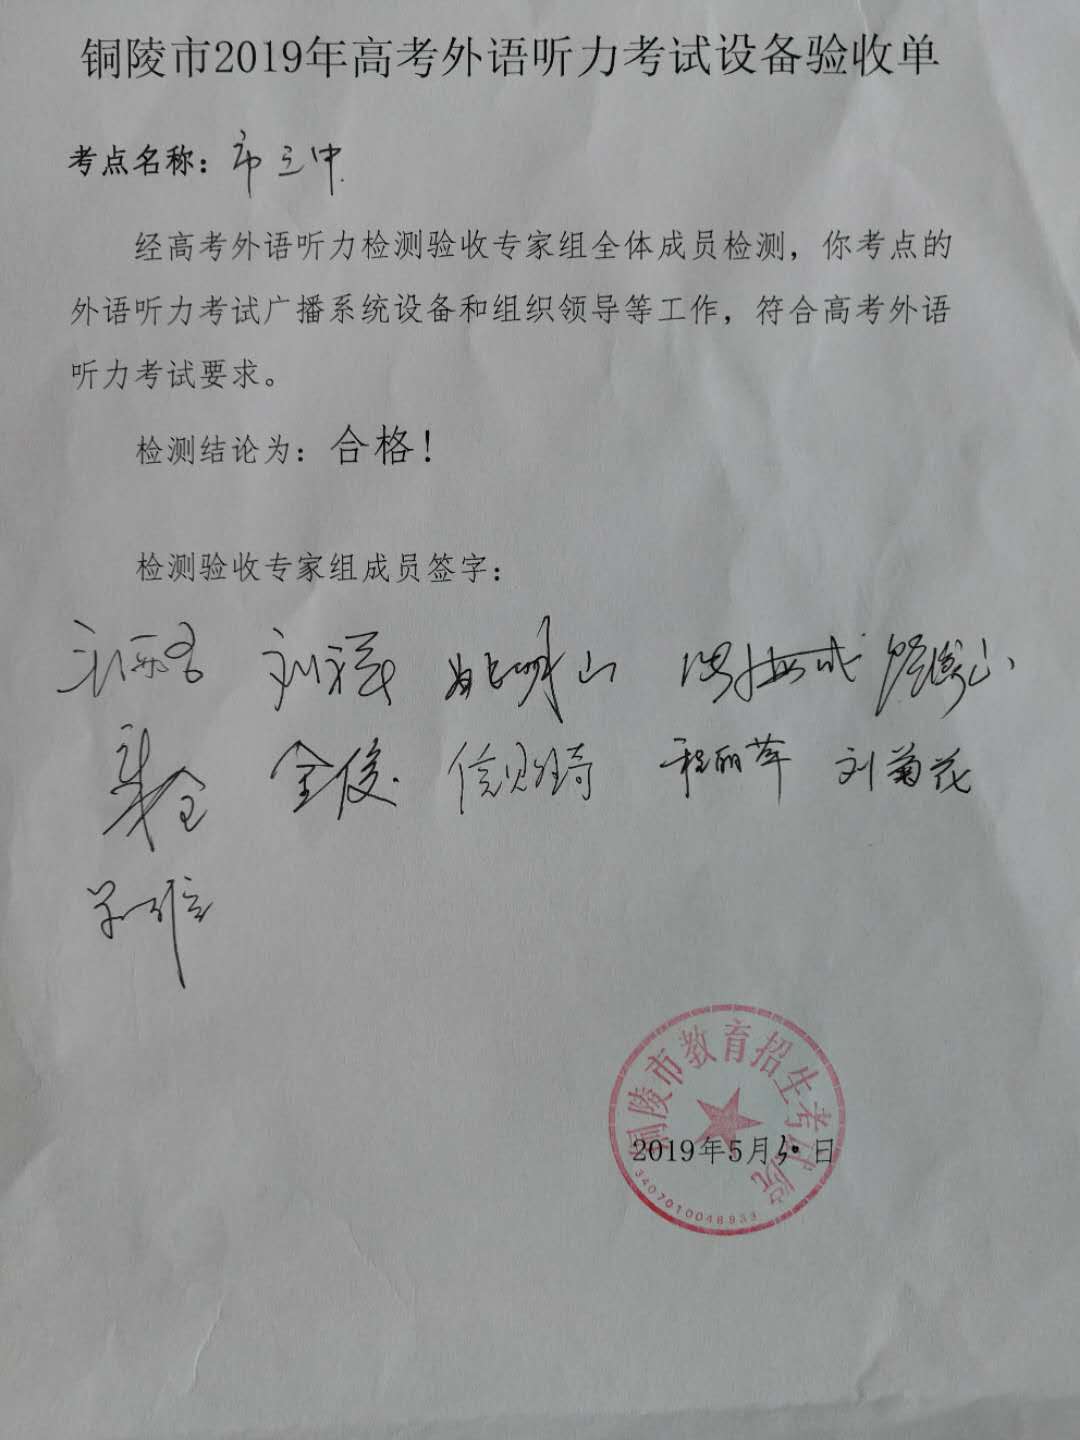 铜陵市2019年高考外语听力考试设备验收单
考点名称：市三中
经高考外语听力检测验收专家组全体成员检测，你考点的
外语听力考试广播系统设备和组织领导等工作，符合高考外语
听力考试要求。
检测结论为：合格！
检测验收专家组成员签字：
金俊 程丽萍 刘菊花
铜陵市教育招生考试院
2019年5月30日
3407010048933